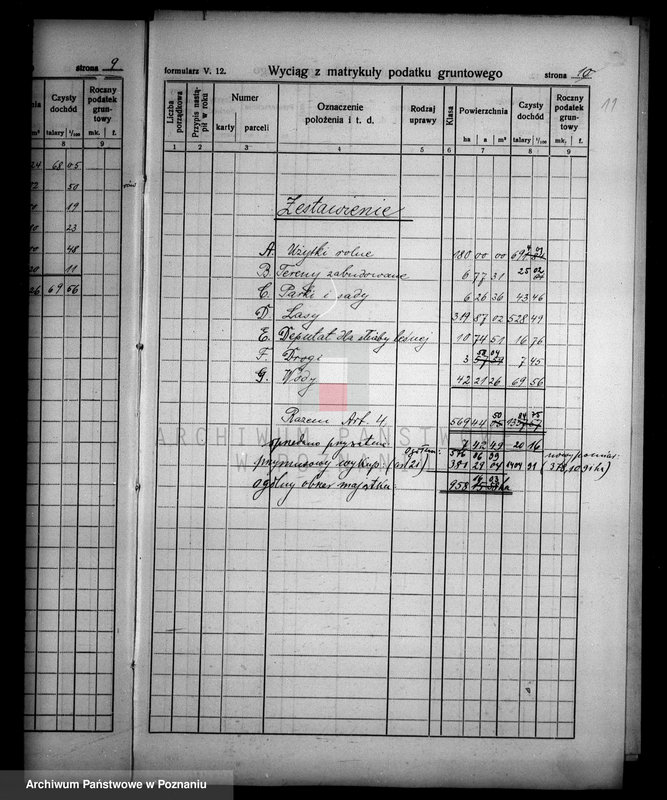 strona 9
Czysty dochód
Roczny podatek gruntowy
m²
talary
¹/₁₀₀
mk.
f.
8
9
24 68 05
50
19
23
48
20 11
26 69 56
formularz V. 12.
Wyciąg z matrykuły podatku gruntowego
strona 10
11
Liczba porządkowa
Przypis nastąpił w roku
Numer
karty
parceli
Oznaczenie położenia i t. d.
Rodzaj uprawy
Klasa
Powierzchnia
ha
a
m²
Czysty dochód
talary
¹/₁₀₀
Roczny podatek gruntowy
mk.
f.
1 2 3 4 5 6 7 8 9
Zestawienie
A. Użytki rolne 180 00 00
B. Tereny zabudowane 6 77 31 25 02
C. Parki i sady 6 26 36 43 46
D. Lasy 319 87 02 528 49
E. Deputat dla służby leśnej 10 74 51 16 76
F. Drogi 3 58 04 7 45
G. Wody 42 21 26 69 56
Razem Art. 4 569 44 50
sprzedano prywatnie 7 42 49 20 16
Ogółem: 576 86 99
przymusowy wykup (art 2) 381 29 04 1404 91
nowy pomiar:
ogólny obszar majątku: 958
ARCHIWUM PAŃSTWOWE
W POZNANIU
Archiwum Państwowe w Poznaniu